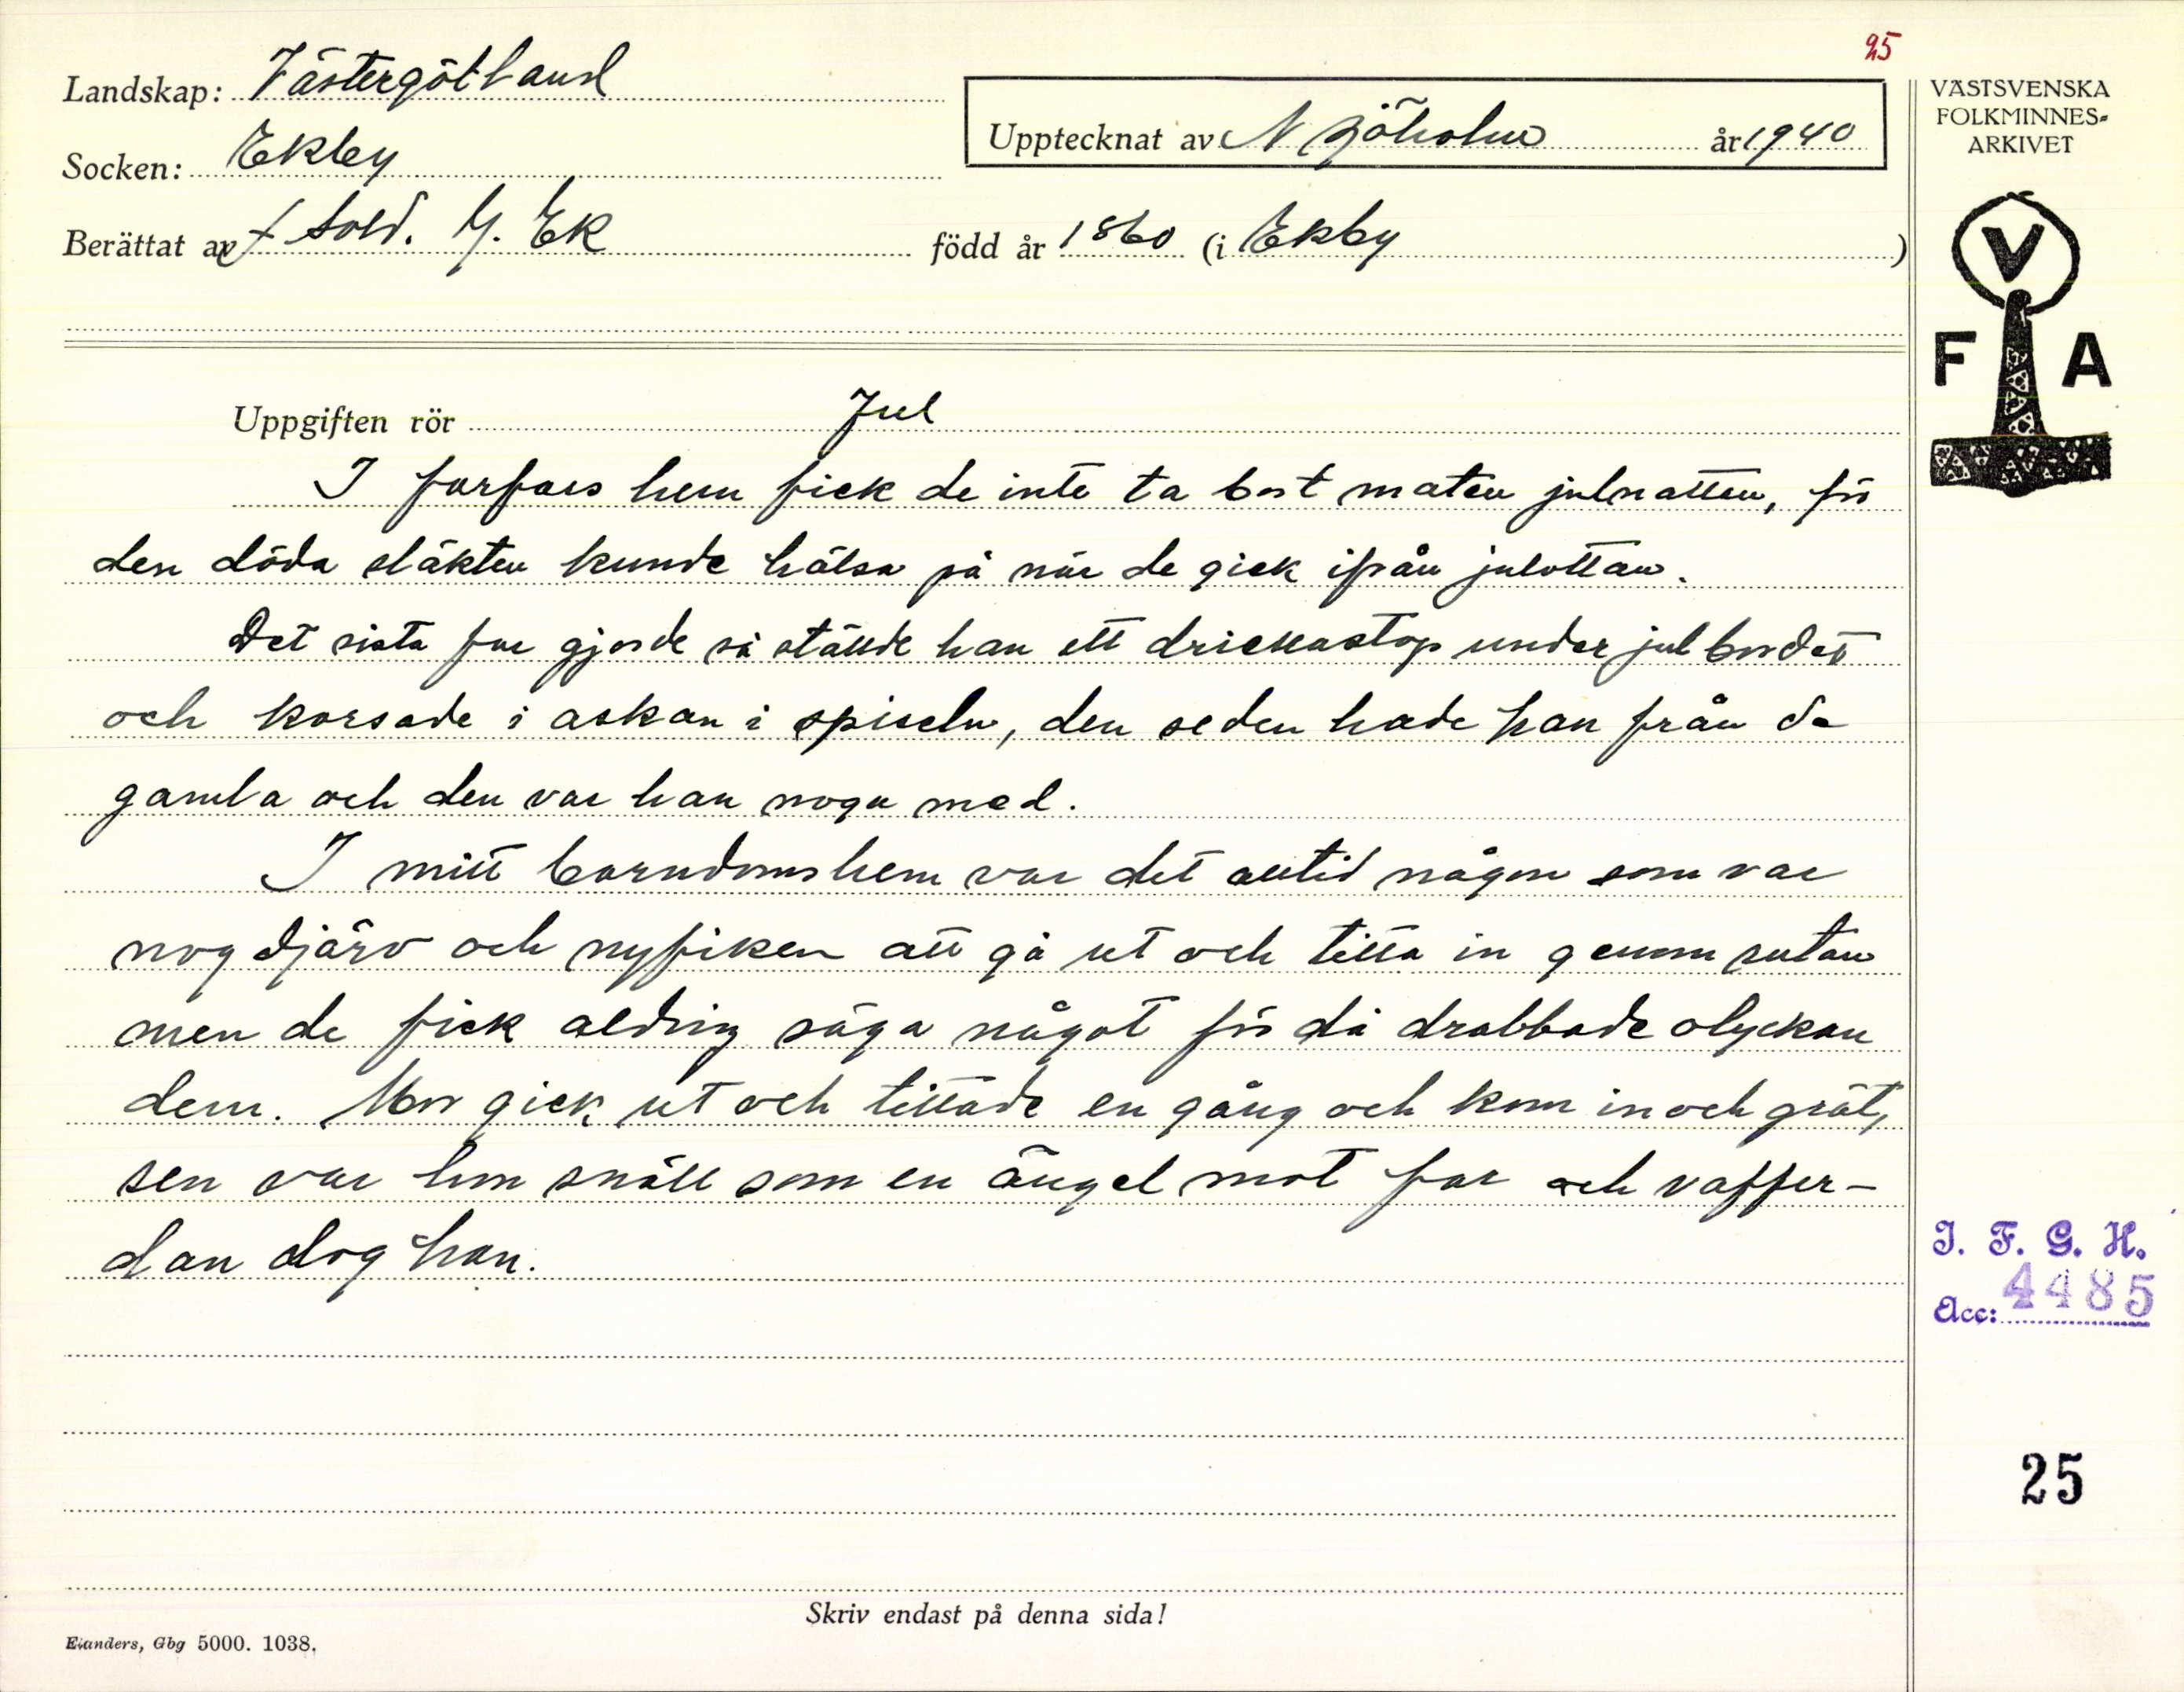 25
Landskap: Västergötland
Socken: Ekby
Berättat av f sold. G. Ek född år 1860 (i Ekby)
Upptecknat av N Sjöholm år 1940
VÄSTSVENSKA
FOLKMINNES=
ARKIVET
V
F A
Uppgiften rör Jul
I farfars hem fick de inte ta bort maten julnatten, för
den döda släkten kunde hälsa på när de gick ifrån julottan.
Det sista far gjorde så ställde han ett drickastop under julbordet
och korsade i askan i spiseln, den seden hade han från de
gamla och den var han noga med.
I mitt barndomshem var det alltid någon som var
nog djärv och nyfiken att gå ut och titta in genom rutan
men de fick aldrig säga något för då drabbade olyckan
dem. Mor gick ut och tittade en gång och kom in och grät,
sen var hon snäll som en ängel mot far och vaffer-
dan dog han.
I. F. G. H.
Acc: 4485
25
Skriv endast på denna sida!
Elanders, Gbg 5000. 1038.